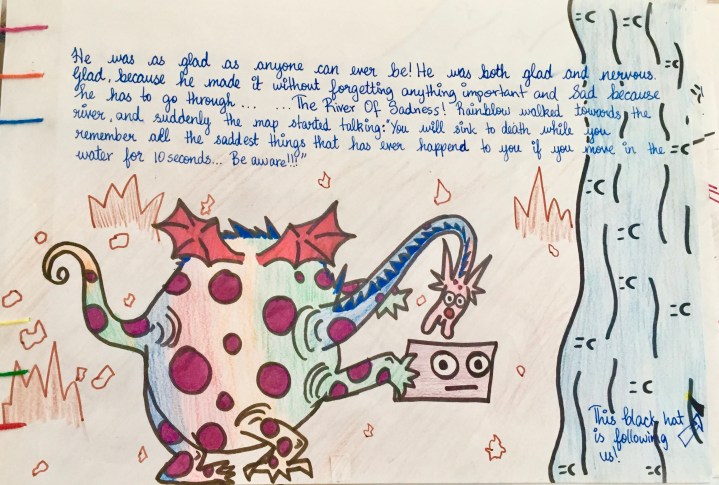 He was as glad as anyone can ever be! He was both glad and nervous.
Glad, because he made it without forgetting anything important and Sad because
he has to go through ... ... The River Of Sadness! Rainblow walked towards the
river, and suddenly the map started talking: "You will sink to death while you
remember all the saddest things that has ever happend to you if you move in the
water for 10 seconds... Be aware!!!"
=C
=C
=C
=C
=C
=C
=C
=C
=C
=C
=C
=C
This black hat
is following
us!
=C
=C